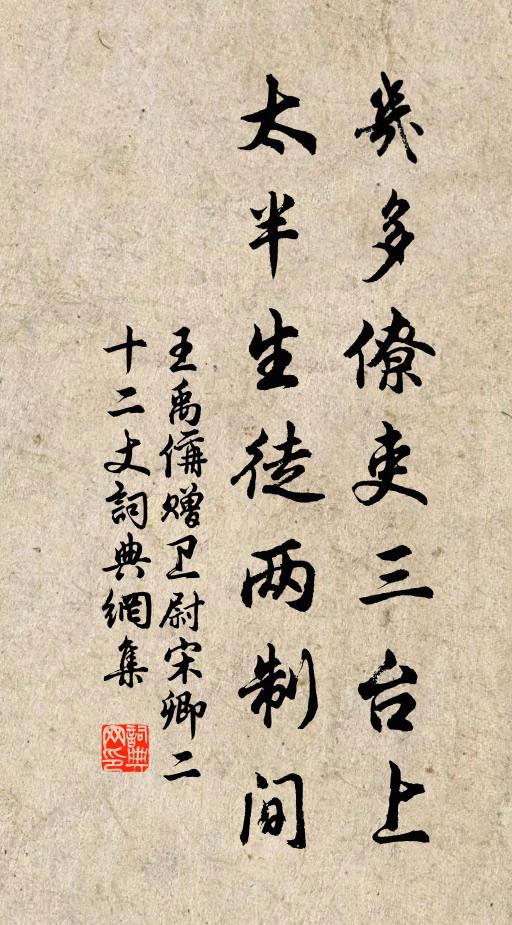 几多僚吏三台上
太半生徒两制间
王禹偁赠卫尉宋卿二
十二丈詞典網集
詞典
网印